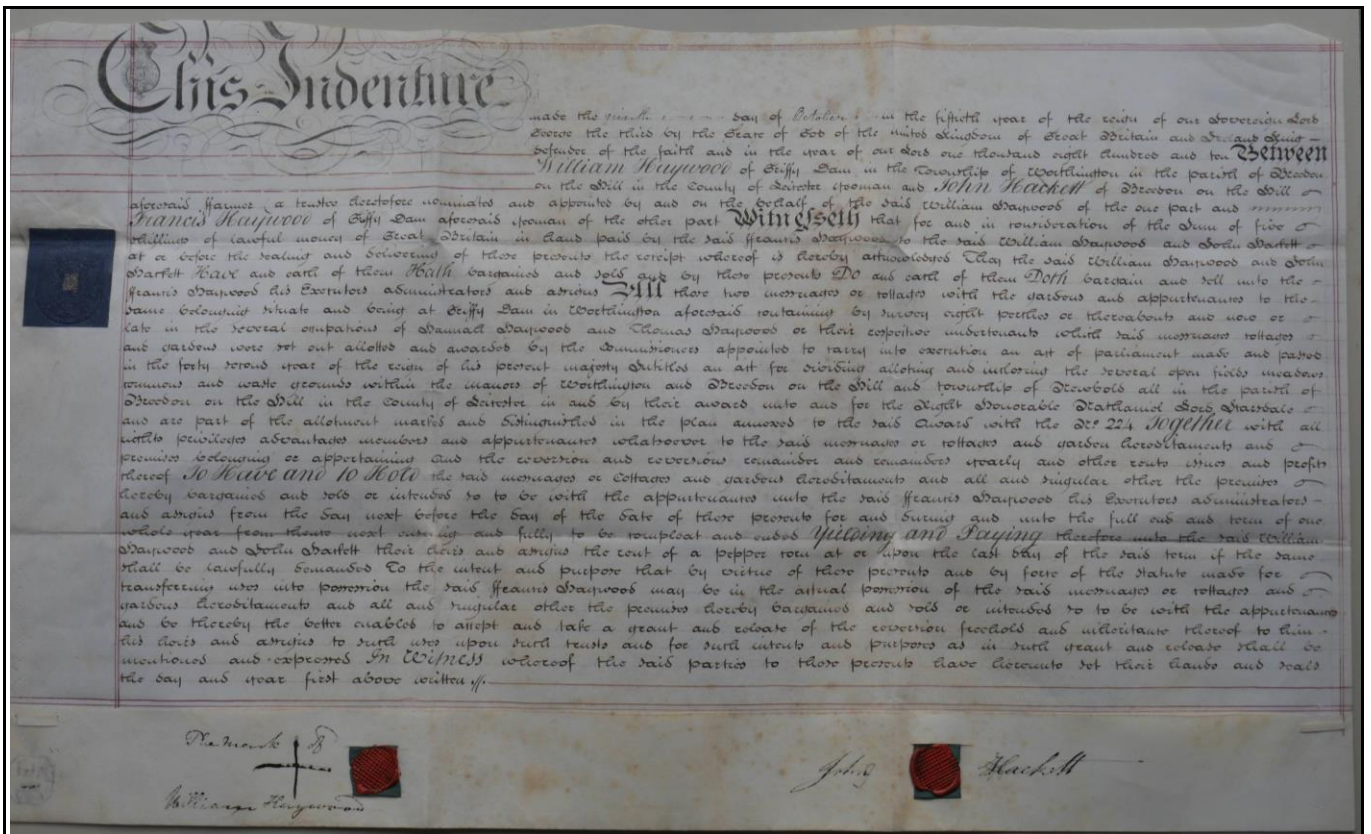 This Indenture
made the ninth day of October in the fiftieth year of the reign of our Sovereign Lord
George the third by the Grace of God of the united Kingdom of Great Britain and Ireland King
defender of the faith and in the year of our Lord one thousand eight hundred and ten Between
William Haywood of Griffy Dam in the Township of Worthington in the parish of Breedon
on the Hill in the County of Leicester yeoman and John Hackett of Breedon on the Hill
aforesaid ffarmer a trustee heretofore nominated and appointed by and on the behalf of the said William Haywood of the one part and
Francis Haywood of Giffy Dam aforesaid yeoman of the other part Witnesseth that for and in consideration of the Sum of five
shillings of lawful money of Great Britain in hand paid by the said ffrancis Haywood to the said William Haywood and John Hackett
at or before the sealing and delivering of these presents the receipt whereof is hereby acknowledged They the said William Haywood and John
Hackett Have and each of them Hath bargained and sold and by these presents Do and each of them Doth bargain and sell unto the
ffrancis Haywood his Executors administrators and assigns All those two messuages or cottages with the gardens and appurtenances to the
same belonging situate and being at Griffy Dam in Worthington aforesaid containing by survey eight perches or thereabouts and now or
late in the several occupations of Hannah Haywood and Thomas Haywood or their respective undertenants which said messuages cottages
and gardens were set out allotted and awarded by the Commissioners appointed to carry into execution an act of parliament made and passed
in the forty second year of the reign of his present majesty Intitled an act for dividing alloting and inclosing the several open fields meadows
commons and waste grounds within the manors of Worthington and Breedon on the Hill and township of Newbold all in the parish of
Breedon on the Hill in the County of Leicester in and by their award unto and for the Right Honorable Nathaniel Lord Scarsdale
and are part of the allotment marked and distinguished in the plan annexed to the said Award with the No. 224 Together with all
rights privileges advantages members and appurtenances whatsoever to the said messuages or cottages and garden hereditaments and
premises belonging or appertaining And the reversion and reversions remainder and remainders yearly and other rents issues and profits
thereof To Have and to Hold the said messuages or Cottages and gardens hereditaments and all and singular other the premises
hereby bargained and sold or intended so to be with the appurtenances unto the said ffrancis Haywood his Executors administrators
and assigns from the day next before the day of the date of these presents for and during and unto the full end and term of one
whole year from thence next ensuing and fully to be compleat and ended Yielding and Paying therefore unto the said William
Haywood and John Hackett their heirs and assigns the rent of a pepper corn at or upon the last day of the said term if the same
shall be lawfully demanded To the intent and purpose that by virtue of these presents and by force of the statute made for
transferring uses into possession the said ffrancis Haywood may be in the actual possession of the said messuages or cottages and
gardens hereditaments and all and singular other the premises hereby bargained and sold or intended so to be with the appurtenances
and be thereby the better enabled to accept and take a grant and release of the reversion freehold and inheritance thereof to him
his heirs and assigns to such uses upon such trusts and for such intents and purposes as in such grant and release shall be
mentioned and expressed In Witness whereof the said parties to these presents have hereunto set their hands and seals
the day and year first above written
The Mark of
William Haywood
John Hackett